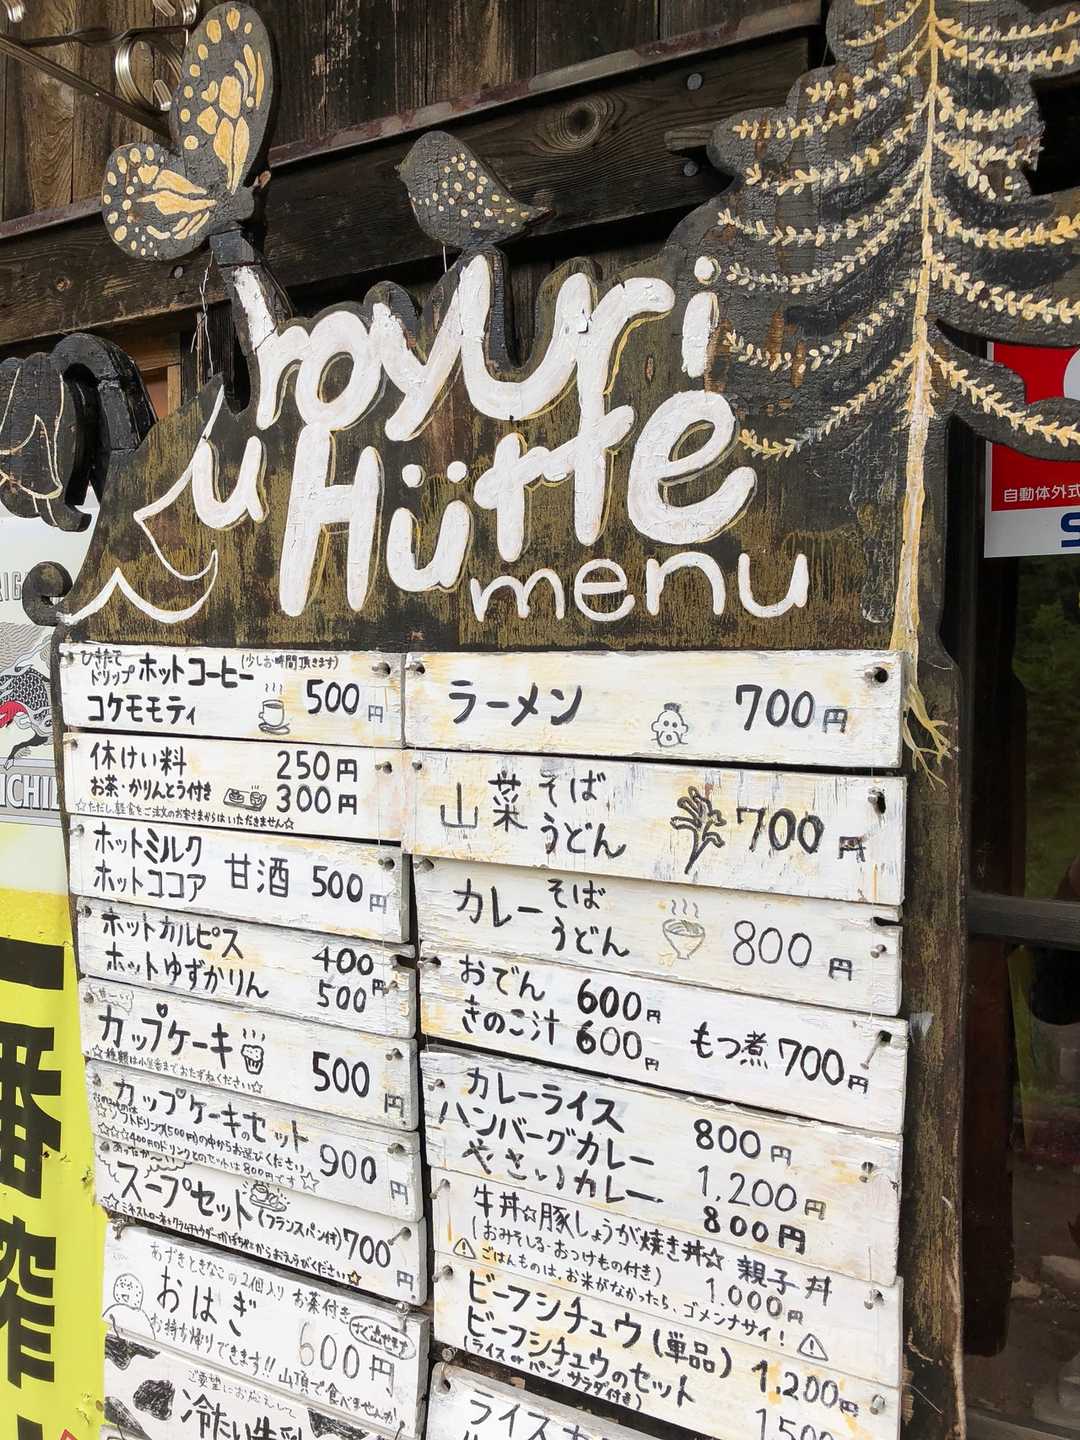 Koyuri
Hütte
menu
ひきたて
ドリップ ホットコーヒー (少しお時間頂きます)
コケモモティ 500円
休けい料 250円
お茶・かりんとう付き 300円
☆ただし、軽食をご注文のお客さまからはいただきません☆
ホットミルク
ホットココア 甘酒 500円
ホットカルピス 400円
ホットゆずかりん 500
カップケーキ 500円
☆種類は小屋番までおたずねください☆
カップケーキのセット 900円
ソフトドリンク(500円)の中からお選びください
☆☆☆400円のドリンクとのセットは800円です☆
あったか〜い
スープセット (フランスパン付) 700円
おえらびください☆
あずきときなこの2個入り お茶付き
おはぎ 600円 すぐ出せます
お持ち帰りできます!! 山頂で食べませんか
ご要望にお応えして
冷たい牛乳
ラーメン 700円
山菜 そば
うどん 700円
カレー そば
うどん 800円
おでん 600円
きのこ汁 600円 もつ煮 700円
カレーライス 800円
ハンバーグカレー 1,200円
やさいカレー 800円
牛丼☆豚しょうが焼き丼☆ 親子丼
(おみそしる・おつけもの付き) 1,000円
⚠ごはんものは、お米がなかったら、ゴメンナサイ!⚠
ビーフシチュウ (単品) 1,200円
ビーフシチュウのセット 1,500
(ライス or パン、サラダ付き)
ライス
自動体外式
一番搾